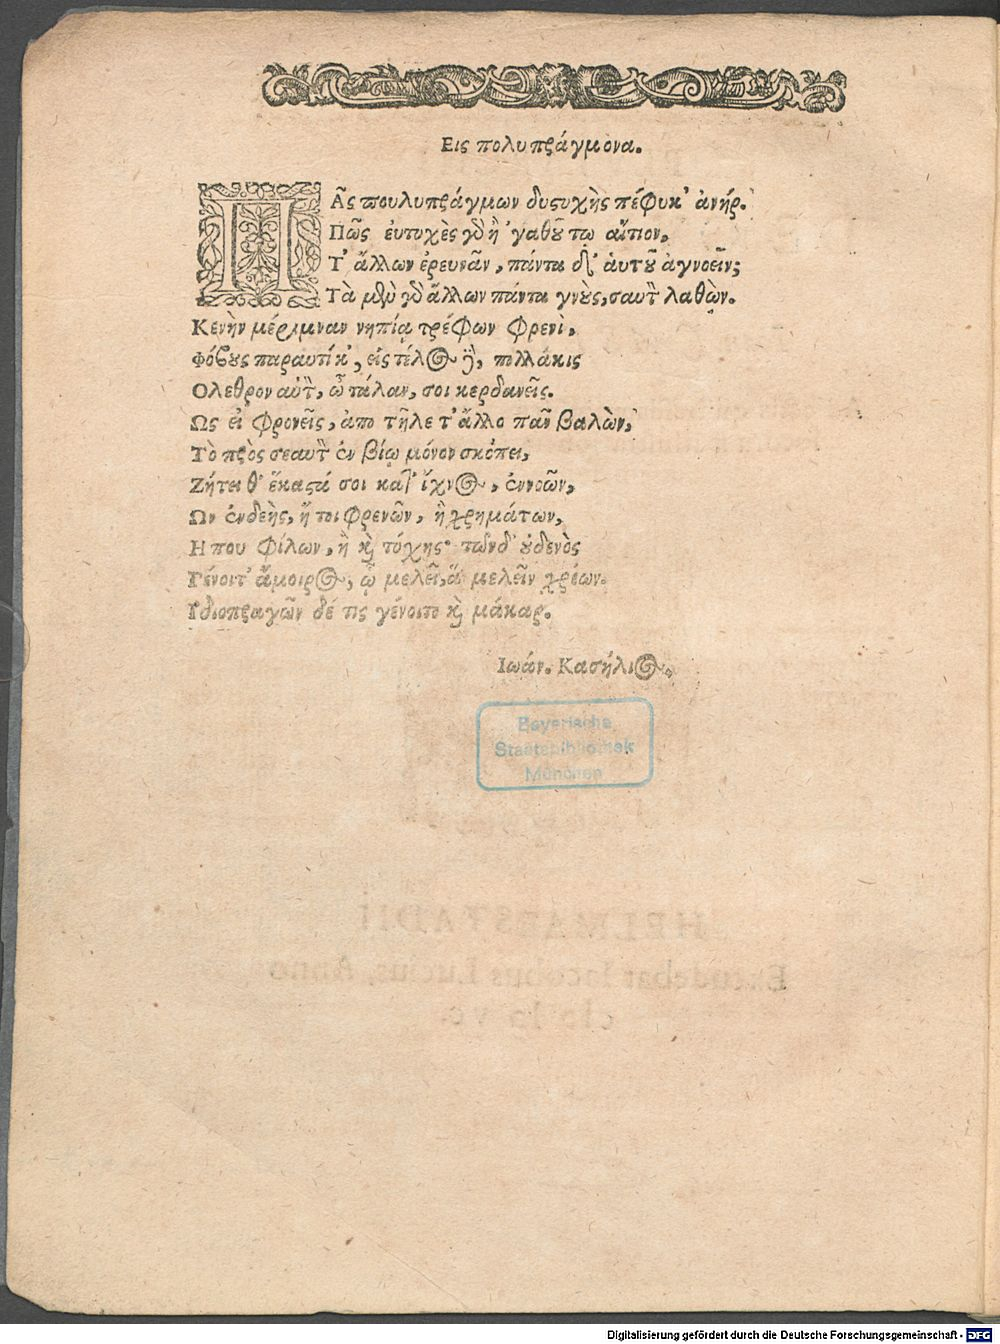 Εις πολυπράγμονα.
ΠΑ͂ς πουλυπράγμων δυςυχὴς πέφυκ' ἀνήρ.
Πῶς ἐυτυχὲς γὸ ἢ 'γαθοῦ τω αἴτιον,
Τ' ἄλλων ἐρευνᾶν, πάντα δι' ἁυτοῦ ἀγνοεῖν;
Τὰ μὲν γὸ ἄλλων πάντα γνοὺς, σαυτὸν λαθὼν.
Κενὴν μέριμναν νηπίᾳ τρέφων φρενὶ,
Φόβους παραυτίκ', εἰς τέλος δὲ, πολλάκις
Ολεθρον αὐτὸν, ὦ τάλαν, σοι κερδανεῖς.
Ως εἰ φρονεῖς, ἀπο τῆλε τ' ἄλλο πᾶν βαλὼν,
Τὸ πρὸς σεαυτὸν ἐν βίῳ μόνον σκόπει,
Ζήτει θ' ἕκαστά σοι κατ' ἴχνος, ἐννοῶν,
Ων ἐνδεὴς, ἤ τοι φρενῶν, ἢ χρημάτων,
Η που φίλων, ἢ καὶ τύχης· τῶνδ' οὐδενὸς
Γένοιτ' ἄμοιρος, ᾧ μελεῖ, ἃ μελεῖν χρέων.
Ιδιοπραγῶν δέ τις γένοιτο καὶ μάκαρ.
Ιωάν. Κασήλιος.
Bayerische
Staatsbibliothek
München
Digitalisierung gefördert durch die Deutsche Forschungsgemeinschaft - DFG